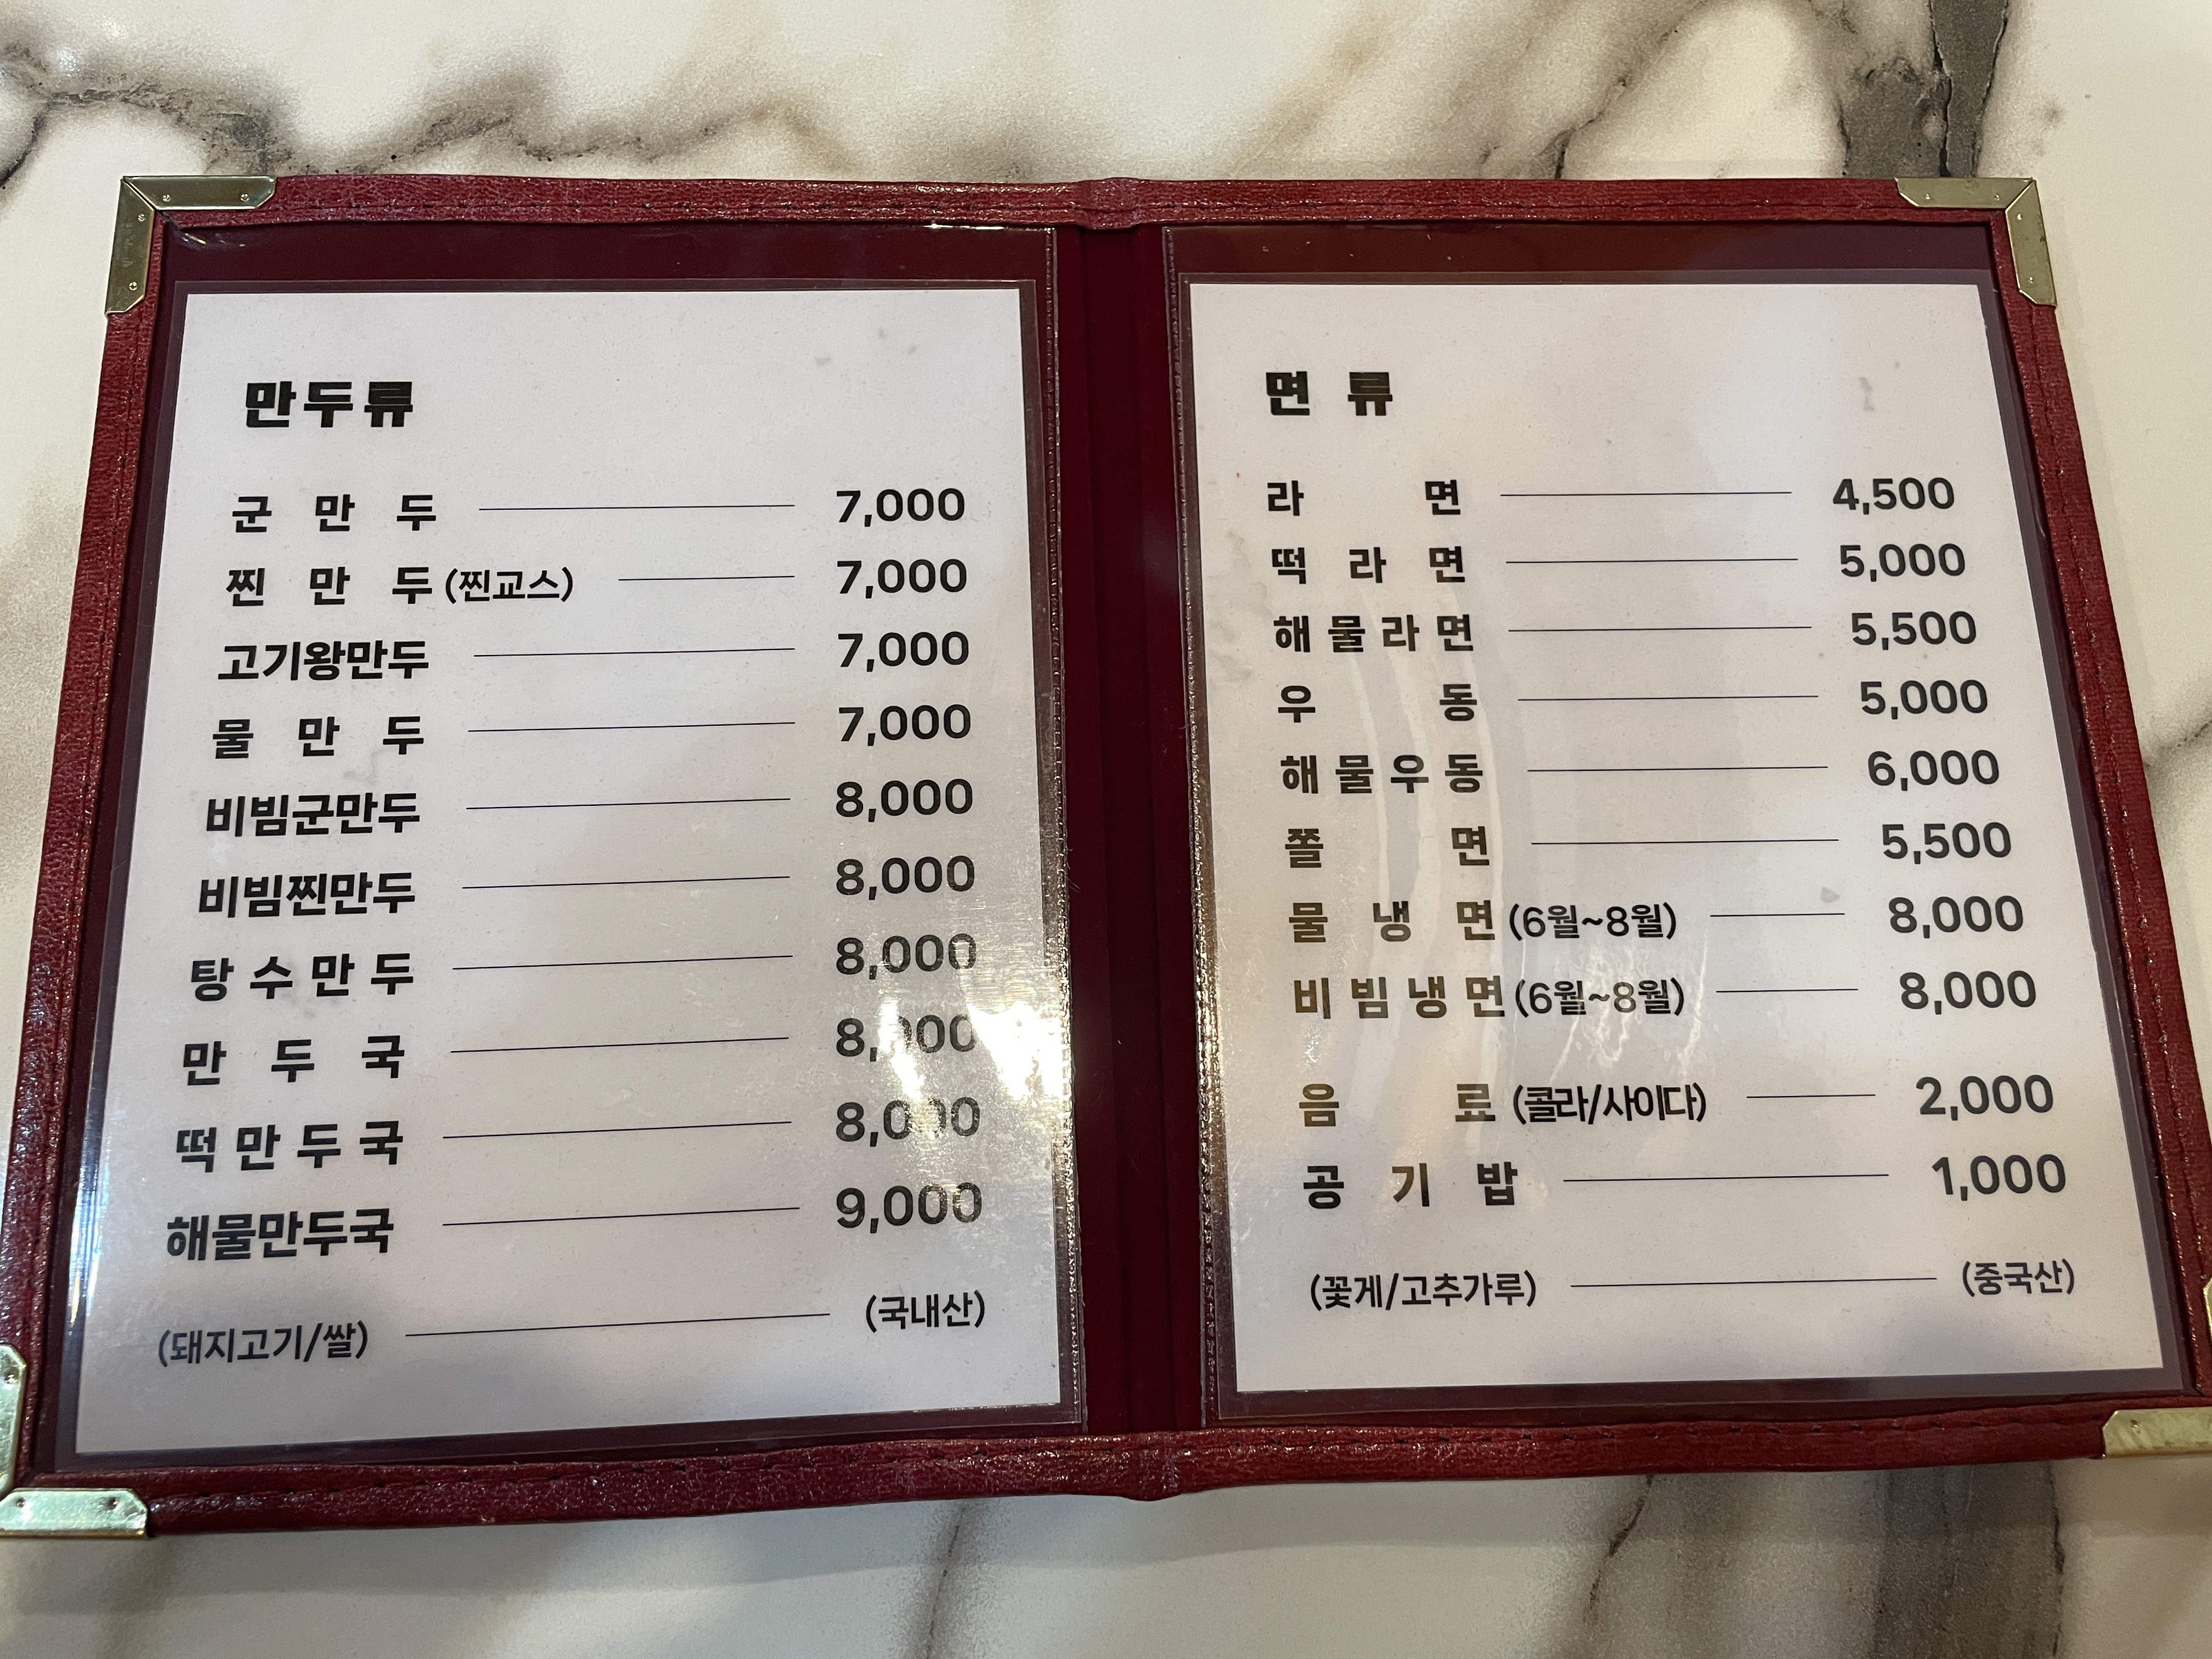 만두류
군 만 두 7,000
찐 만 두 (찐교스) 7,000
고기왕만두 7,000
물 만 두 7,000
비빔군만두 8,000
비빔찐만두 8,000
탕 수 만 두 8,000
만 두 국 8,000
떡 만 두 국 8,000
해물만두국 9,000
(돼지고기/쌀) (국내산)
면 류
라 면 4,500
떡 라 면 5,000
해 물 라 면 5,500
우 동 5,000
해 물 우 동 6,000
쫄 면 5,500
물 냉 면 (6월~8월) 8,000
비 빔 냉 면 (6월~8월) 8,000
음 료 (콜라/사이다) 2,000
공 기 밥 1,000
(꽃게/고추가루) (중국산)